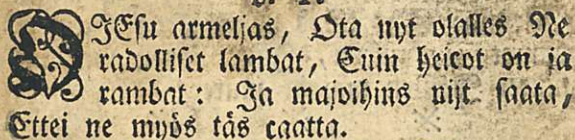 O JEsu armeljas, Ota nyt olalles Ne
radolliset lambat, Cuin heicot on ja
rambat: Ja majoihins nijt saata,
Ettei ne myös täs caatta.